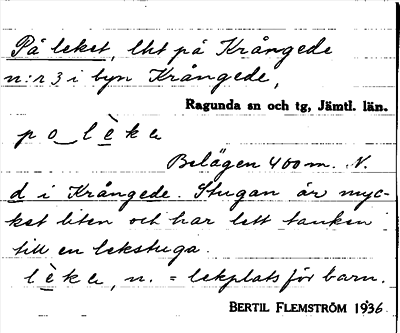 På leket, lht på Krångede
n:r 3 i byn Krångede,
Ragunda sn och tg, Jämtl. län.
p o_l è k e
Belägen 400 m. N.
d i Krångede. Stugan är myc-
ket liten och har lett tanken
till en lekstuga.
l è k e, n. = lekplats för barn.
BERTIL FLEMSTRÖM 1936